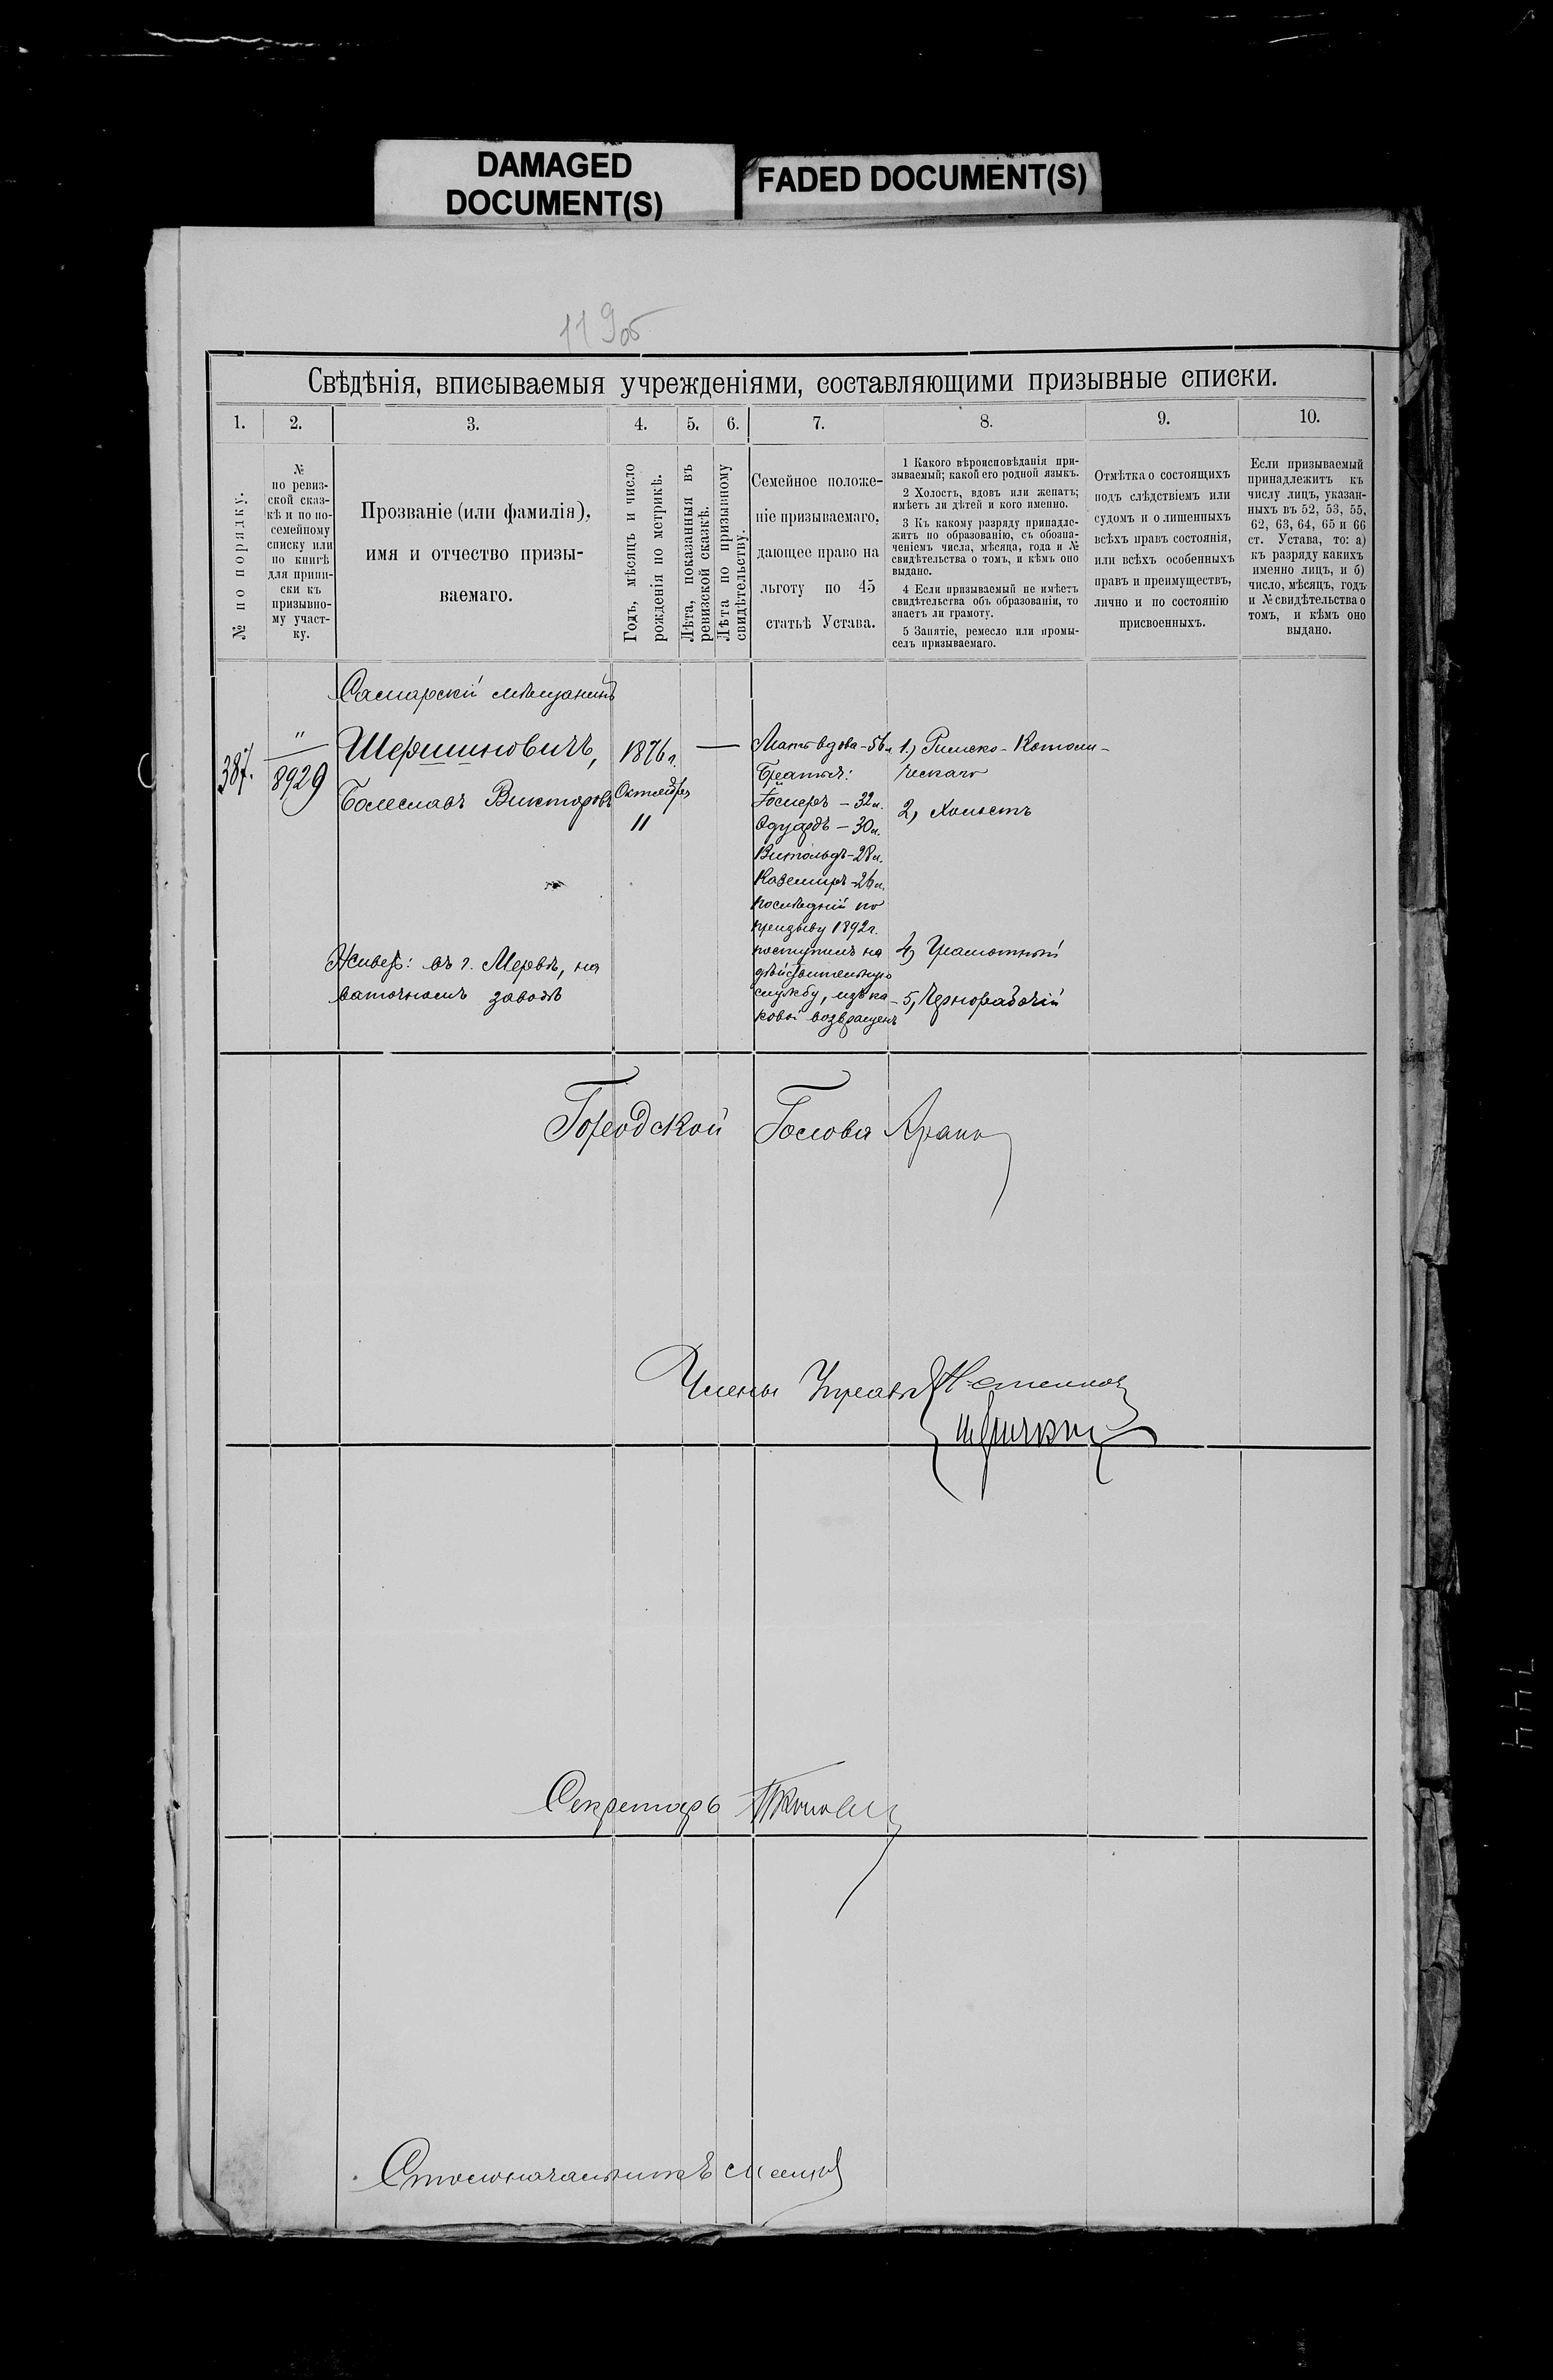 DAMAGED
DOCUMENT(S)
FADED DOCUMENT(S)
119об
Свѣдѣнія, вписываемыя учрежденіями, составляющими призывные списки.
1.
2.
3.
4.
5.
6.
7.
8.
9.
10.
№ по порядку.
№
по ревиз-
ской сказ-
кѣ и по по-
семейному
списку или
по книгѣ
для припи-
ски къ
призывно-
му участ-
ку.
Прозваніе (или фамилія),
имя и отчество призы-
ваемаго.
Годъ, мѣсяцъ и число
рожденія по метрикѣ.
Лѣта, показанныя въ
ревизской сказкѣ.
Лѣта по призывному
свидѣтельству.
Семейное положе-
ніе призываемаго,
дающее право на
льготу по 45
статьѣ Устава.
1 Какого вѣроисповѣданія при-
зываемый; какой его родной языкъ.
2 Холостъ, вдовъ или женатъ;
имѣетъ ли дѣтей и кого именно.
3 Къ какому разряду принадле-
житъ по образованію, съ обозна-
ченіемъ числа, мѣсяца, года и №
свидѣтельства о томъ, и кѣмъ оно
выдано.
4 Если призываемый не имѣетъ
свидѣтельства объ образованіи, то
знаетъ ли грамоту.
5 Занятіе, ремесло или промы-
селъ призываемаго.
Отмѣтка о состоящихъ
подъ слѣдствіемъ или
судомъ и о лишенныхъ
всѣхъ правъ состоянія,
или всѣхъ особенныхъ
правъ и преимуществъ,
лично и по состоянію
присвоенныхъ.
Если призываемый
принадлежитъ къ
числу лицъ, указан-
ныхъ въ 52, 53, 55,
62, 63, 64, 65 и 66
ст. Устава, то: а)
къ разряду какихъ
именно лицъ, и б)
число, мѣсяцъ, годъ
и № свидѣтельства о
томъ, и кѣмъ оно
выдано.
Самарскій мѣщанинъ
387.
"
8929
Шершиновичъ,
Болеславъ Викторовъ
Живетъ: въ г. Мервѣ, на
ваточномъ заводѣ
1876 г.
Октября
11
—
Мать вдова - 56 л.
Братья:
- 32 л.
Эдуардъ - 30 л.
Витольдъ - 28 л.
Каземиръ - 26 л.
послѣдній по
призыву 1892 г.
поступилъ на
дѣйствительную
службу, изъ ка-
ковой возвращенъ
1, Римско-Католи-
ческаго
2, Холостъ
4, Грамотный
5, Чернорабочій
Городской Голова
Члены Управы
Секретарь
Столоначальникъ
744